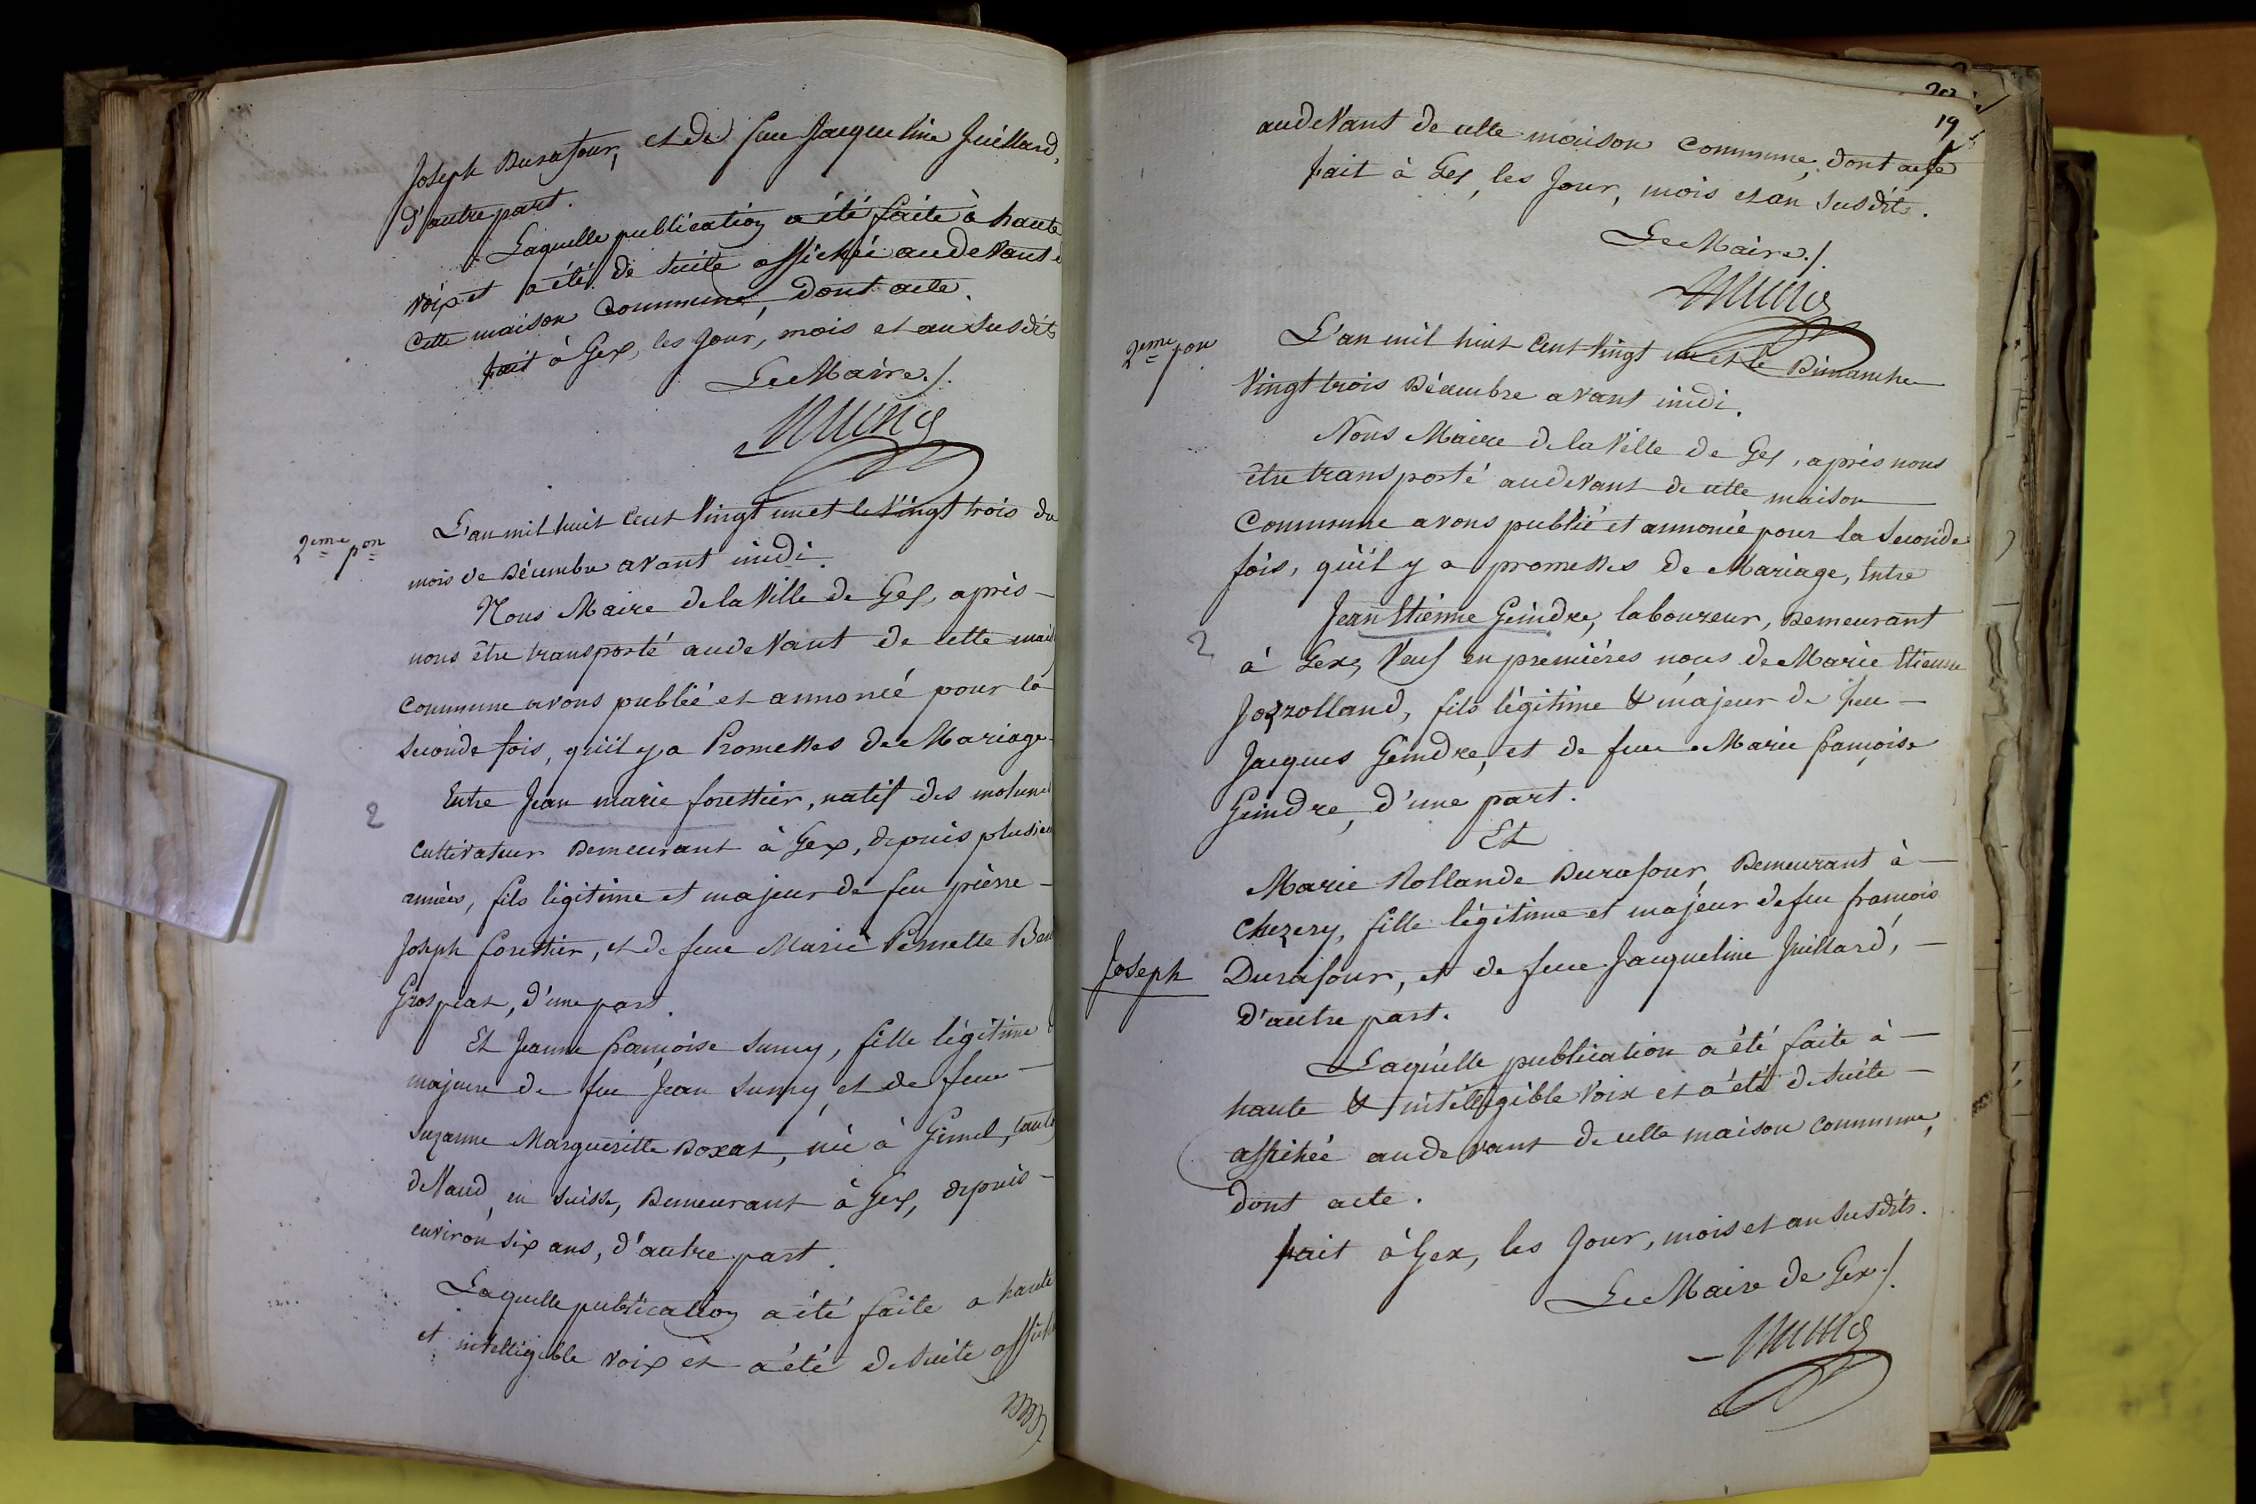 Joseph Durafour, et de feue Jacqueline Juillard,
d'autre part.
Laquelle publication a été faite à haute
voix et a été de suite affichée au devant
cette maison commune, dont acte.
fait à Gex, les jour, mois et an susdits
Le Maire./.
2eme pon
L'an mil huit cent vingt un et le vingt trois du
mois de Décembre avant midi.
Nous Maire de la Ville de Gex, après
nous être transporté au devant de cette mais
commune avons publié et annoncé pour la
seconde fois, qu'il y a Promesses de Mariage
2
Entre Jean marie forestier, natif des molunes
cultivateur Demeurant à Gex, depuis plusieu
années, fils légitime et majeur de feu pierre
Joseph forestier, et de feue Marie Pernette
Grospeas, d'une part.
Et Jeanne françoise Sumy, fille légitime
majeure de feu Jean Sumy, et de feue
Suzanne Margueritte Doxat, née à Gimel, Canto
de Vaud, en Suisse, Demeurant à Gex, depuis
environ six ans, d'autre part.
Laquelle publication a été faite a haute
et intelligible voix et a été de suite affiché
19
au devant de cette maison commune, dont acte
fait à Gex, les jour, mois et an susdits.
Le Maire./.
2eme pon
L'an mil huit cent vingt un et le Dimanche
vingt trois Décembre avant midi.
Nous Maire de la Ville de Gex, après nous
être transporté au devant de cette maison
commune avons publié et annoncé pour la seconde
fois, qu'il y a promesses de Mariage, Entre
2
Jean Etienne Geindre, laboureur, Demeurant
à Gex, Veuf en premières noces de Marie Etienne
Jozrolland, fils légitime & majeur de feu
Jacques Geindre, et de feue Marie françoise
Geindre, d'une part.
Et
Marie Rollande Durafour Demeurant à
Chezery, fille légitime et majeur de feu françois
Joseph
Durafour, et de feue Jacqueline Juillard,
d'autre part.
Laquelle publication a été faite à
haute & intelligible voix et a été de suite
affichée au devant de cette maison commune,
dont acte.
fait à Gex, les jour, mois et an susdits.
Le Maire de Gex./.